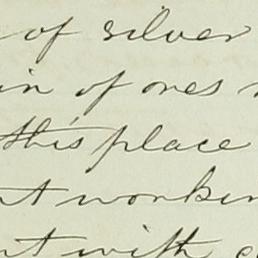 of silver
in of ones
this place
t workin
t with